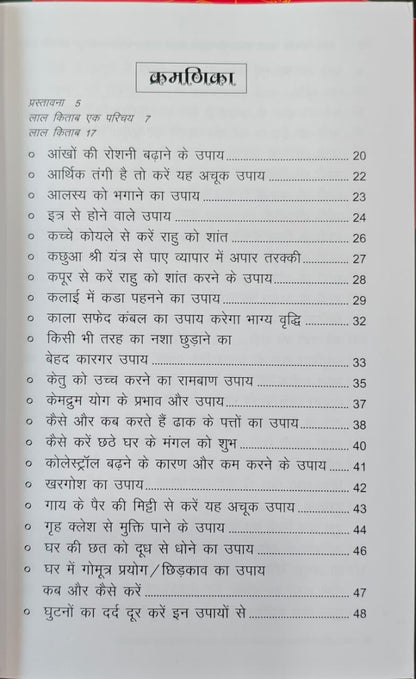 क्रमणिका
प्रस्तावना 5
लाल किताब एक परिचय 7
लाल किताब 17
आंखों की रोशनी बढ़ाने के उपाय 20
आर्थिक तंगी है तो करें यह अचूक उपाय 22
आलस्य को भगाने का उपाय 23
इत्र से होने वाले उपाय 24
कच्चे कोयले से करें राहु को शांत 26
कछुआ श्री यंत्र से पाए व्यापार में अपार तरक्की 27
कपूर से करें राहु को शांत करने के उपाय 28
कलाई में कडा पहनने का उपाय 29
काला सफेद कंबल का उपाय करेगा भाग्य वृद्धि 32
किसी भी तरह का नशा छुड़ाने का
बेहद कारगर उपाय 33
केतु को उच्च करने का रामबाण उपाय 35
केमद्रुम योग के प्रभाव और उपाय 37
कैसे और कब करते हैं ढाक के पत्तों का उपाय 38
कैसे करें छठे घर के मंगल को शुभ 40
कोलेस्ट्रॉल बढ़ने के कारण और कम करने के उपाय 41
खरगोश का उपाय 42
गाय के पैर की मिट्टी से करें यह अचूक उपाय 43
गृह क्लेश से मुक्ति पाने के उपाय 44
घर की छत को दूध से धोने का उपाय 46
घर में गोमूत्र प्रयोग/छिड़काव का उपाय
कब और कैसे करें 47
घुटनों का दर्द दूर करें इन उपायों से 48